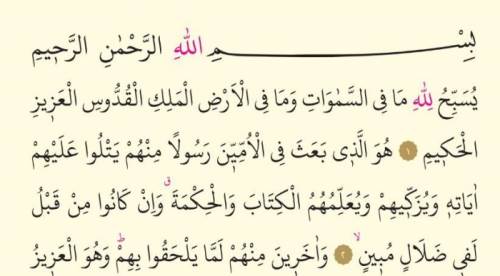 بِسْمِ اللهِ الرَّحْمٰنِ الرَّح۪يمِ
يُسَبِّحُ لِلّٰهِ مَا فِي السَّمٰوَاتِ وَمَا فِي الْاَرْضِ الْمَلِكِ الْقُدُّوسِ الْعَز۪يزِ
الْحَك۪يمِ ﴿١﴾ هُوَ الَّذ۪ي بَعَثَ فِي الْاُمِّيّ۪نَ رَسُولًا مِنْهُمْ يَتْلُوا عَلَيْهِمْ
اٰيَاتِه۪ وَيُزَكّ۪يهِمْ وَيُعَلِّمُهُمُ الْكِتَابَ وَالْحِكْمَةَۗ وَاِنْ كَانُوا مِنْ قَبْلُ
لَف۪ي ضَلَالٍ مُب۪ينٍۙ ﴿٢﴾ وَاٰخَر۪ينَ مِنْهُمْ لَمَّا يَلْحَقُوا بِهِمْۜ وَهُوَ الْعَز۪يزُ